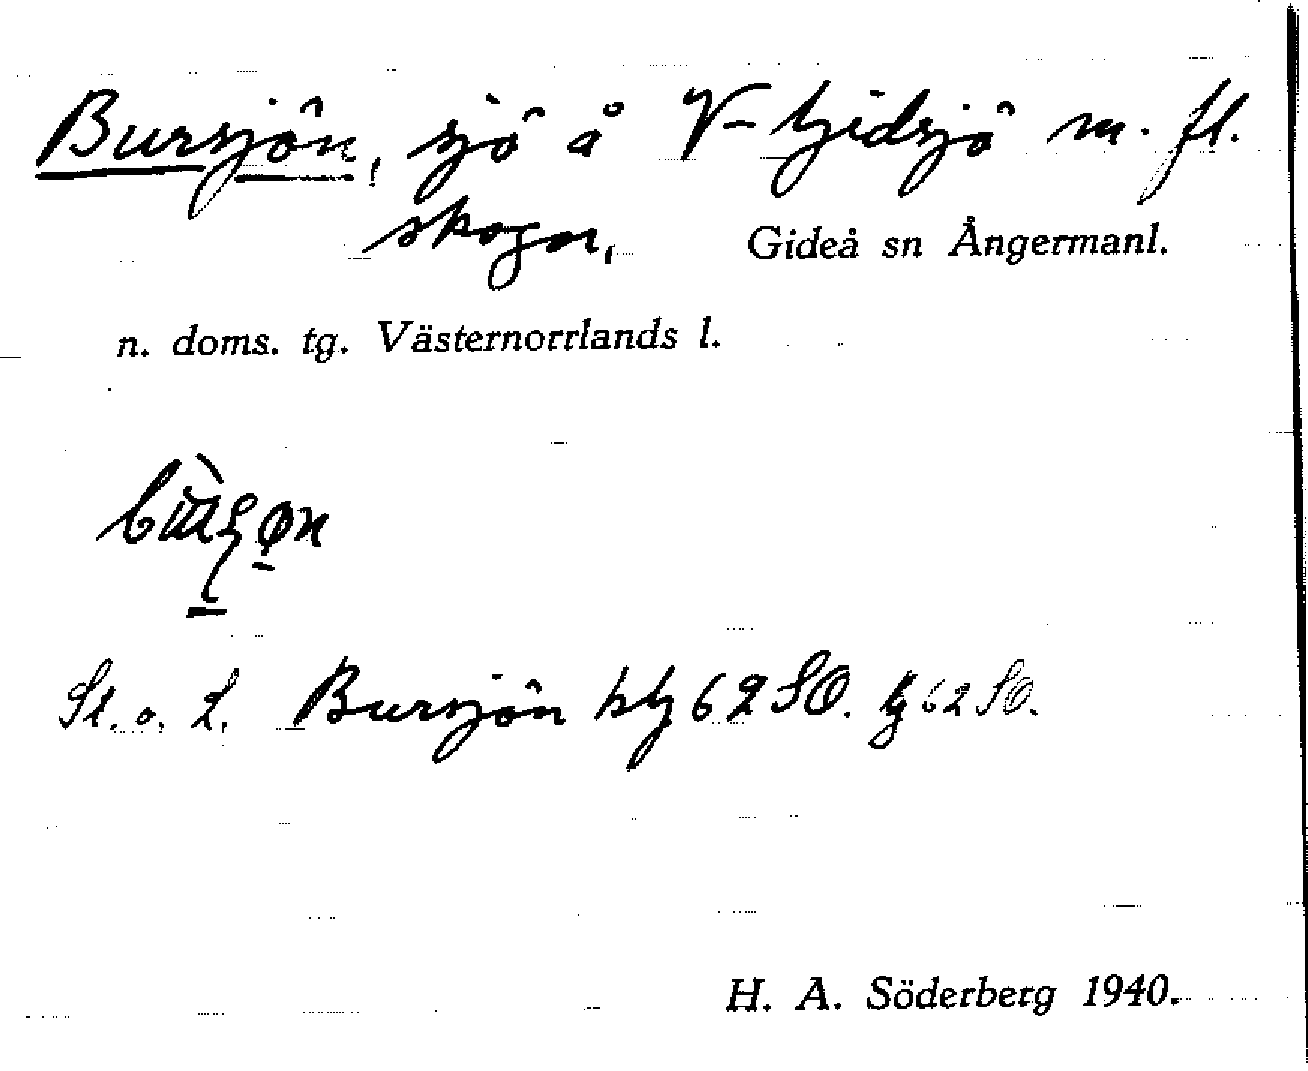 Bursjön, sjö å V-Gidsjö m. fl.
skogar, Gideå sn Ångermanl.
n. doms. tg. Västernorrlands l.
St. o. L. Bursjön hg 62 SO. lg 62 SO.
H. A. Söderberg 1940.